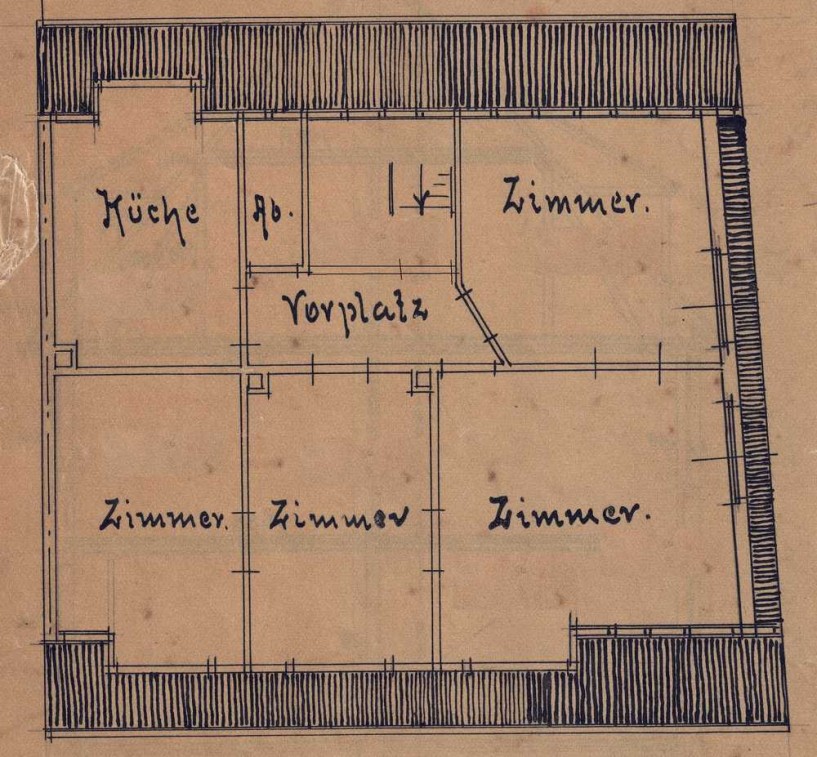 Küche
Ab.
Zimmer.
Vorplatz
Zimmer.
Zimmer
Zimmer.